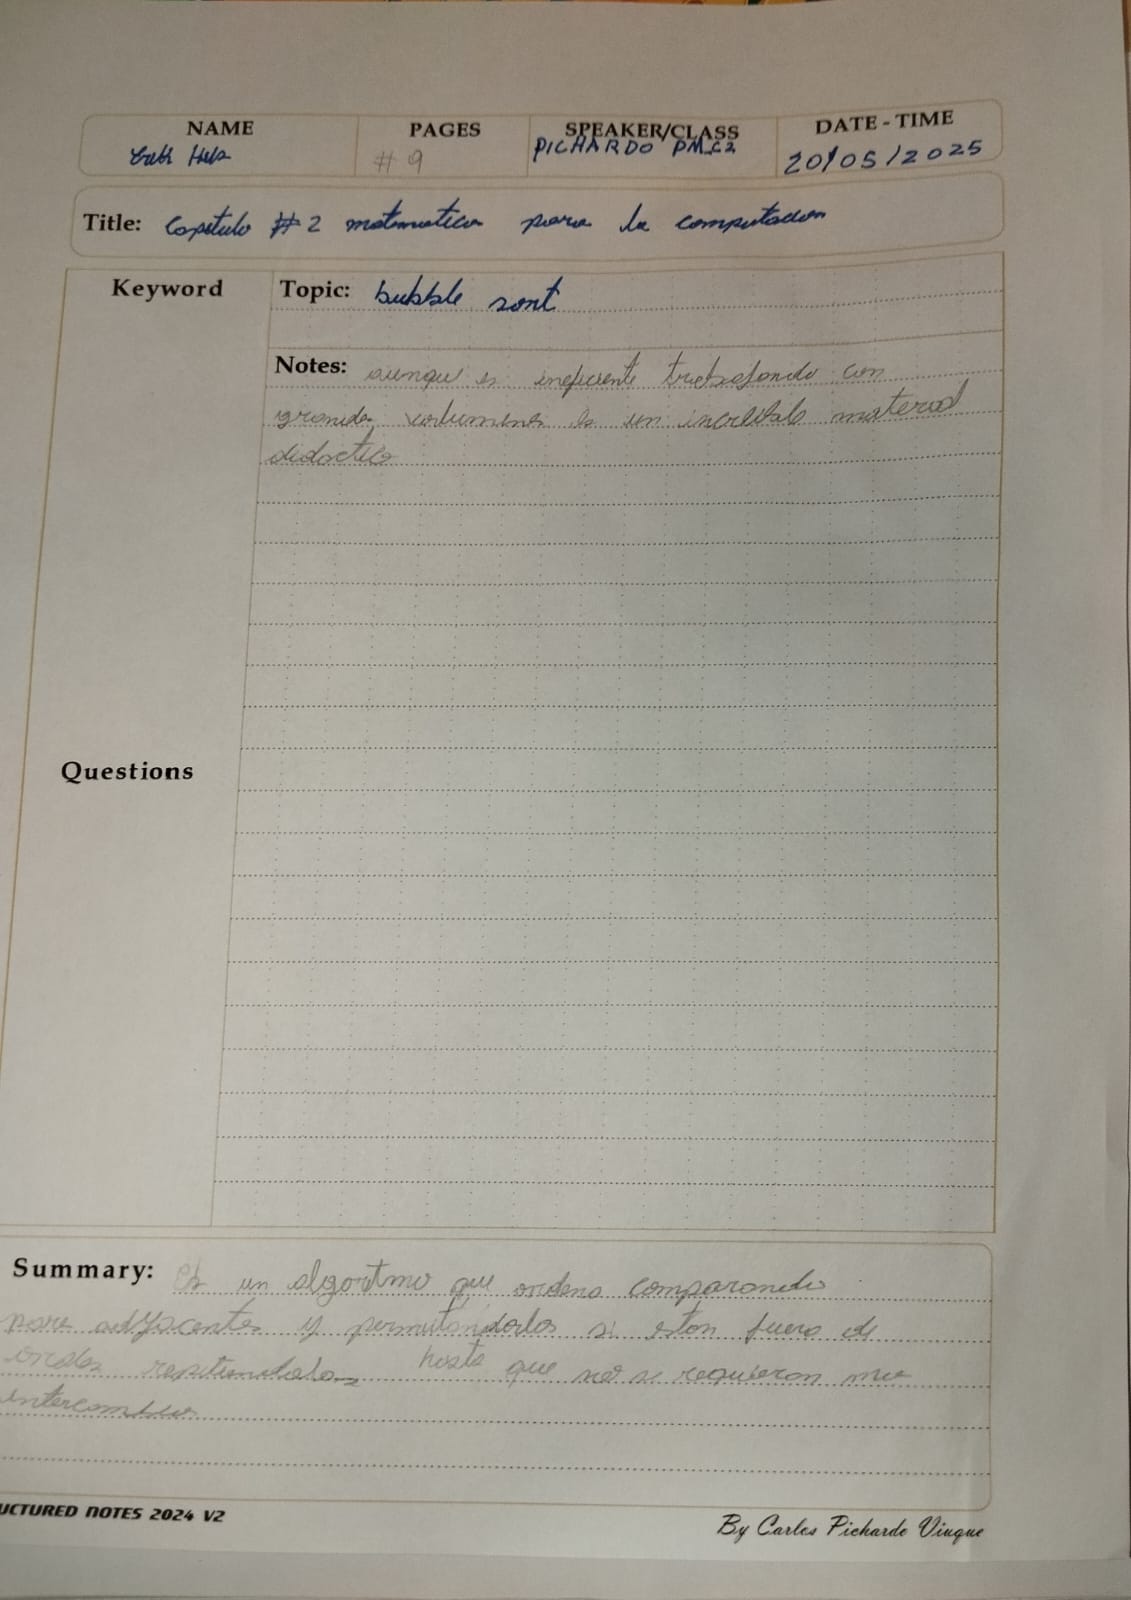 NAME PAGES SPEAKER/CLASS DATE - TIME
# 9 PICHARDO PM.C2 20/05/2025
Title: Capitulo # 2 matematica para la computacion
Keyword
Topic: bubble sort
Notes: aunque es ineficiente trabajando con
grandes volumenes es un increible material
didactico
Questions
Summary: Es un algoritmo que ordena comparando
pares adyacentes y permutándolos si estan fuera de
orden repitiendolo hasta que no se requieran mas
intercambios
UCTURED NOTES 2024 V2
By Carlos Pichardo Viuque